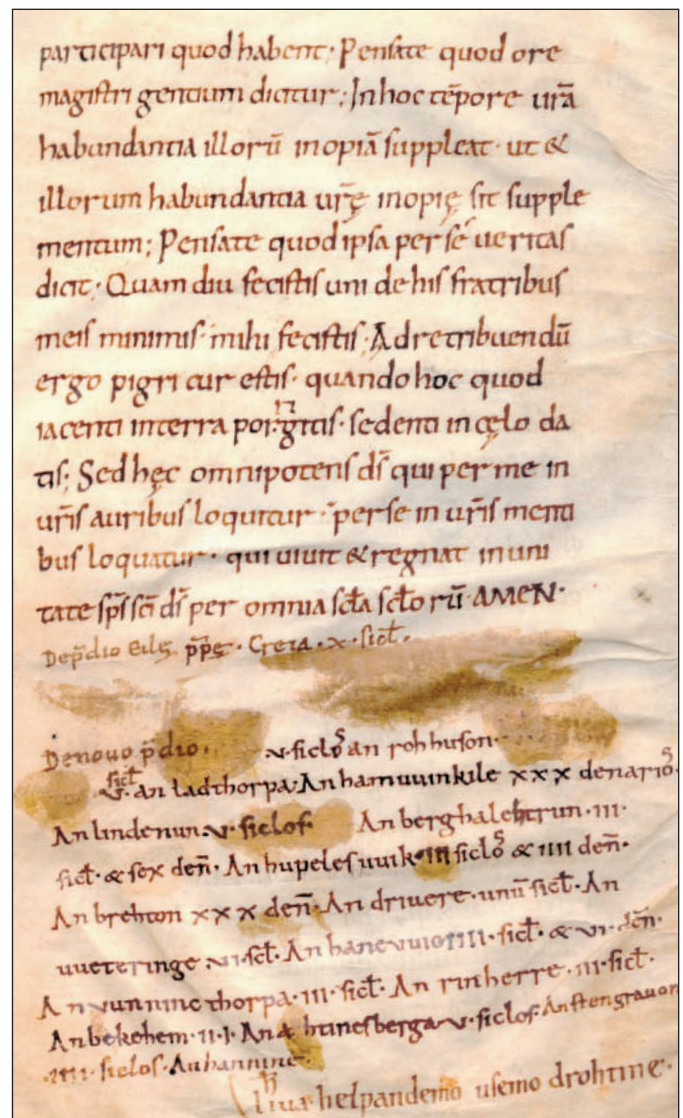 participari quod habent· Pensate quod ore
magistri gentium dicitur; In hoc tēpore urā
habundantia illorū inopiā suppleat· ut &
illorum habundantia urę̄ inopię sit supple
mentum; Pensate quod ipsa per sé ueritas
dicit· Quam diu fecistis uni de his fratribus
meis minimis· mihi fecistis· Ad retribuendū
ergo pigri cur estis· quando hoc quod
iacenti in terra porrigitis· sedenti in cęlo da
tis; Sed hęc omnipotens dś qui per me in
uŕis auribus loquitur· per se in uŕis menti
bus loquatur· qui uiuit & regnat in uni
tate sp̄s sc̄i dś per omnia sc̄la sc̄lorū· AMEN·
De p̄dio Eilę p̄pę· Creia· x· sicł·
De nouo p̄dio· v· siclos an rohhuson·
v· sicł· an ladthorpa· An hamuuinkile xxx denarios·
An lindenun· v· siclos· An berghalehtrun· III·
sicł· & sex deñ· An hupelesuuik· III siclos & IIII deñ·
An brehton xxx deñ· An driuere· unū sicł· An
uueteringe· VI· scł· An haneuuic IIII· sicł· & VI· deñ·
An vunnincthorpa· III· sicł· An rinherre· III· sicł·
An bekehem· II· I· An htinesberga· v· siclos· An stengrauon
IIII· siclos· An hannine·
helpan demo usemo drohtine·